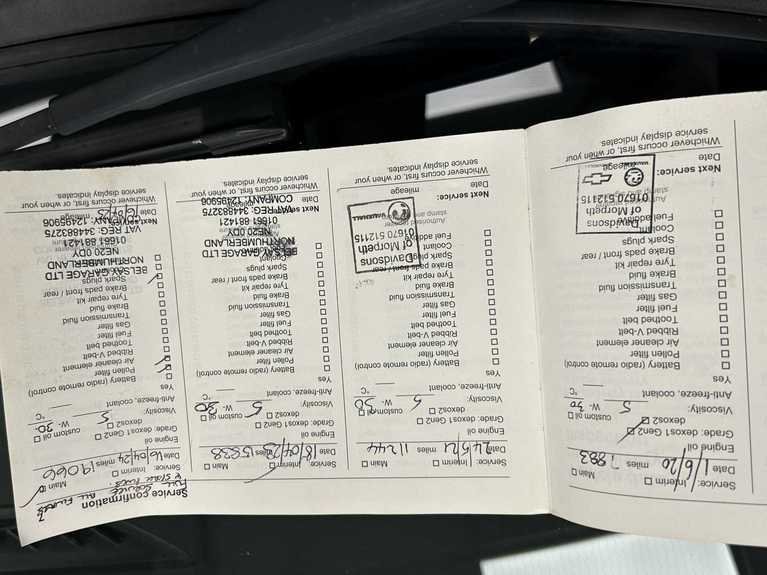 Service: Interim Main
Date 1/6/20 miles 7883
Engine oil
Grade: dexos1 Gen2
dexos2 custom oil
Viscosity: 5 W- 30
Anti-freeze, coolant
Yes
Battery (radio remote control)
Pollen filter
Air cleaner element
Ribbed V-belt
Toothed belt
Fuel filter
Gas filter
Transmission fluid
Brake fluid
Tyre repair kit
Brake pads front / rear
Spark plugs
Coolant
Fuel additive
Davidsons
of Morpeth
01670 512115
Next service:
Date mileage
Whichever occurs first, or when your
service display indicates.
Service: Interim Main
Date 24/5/21 miles 11244
Engine oil
Grade: dexos1 Gen2
dexos2 custom oil
Viscosity: 5 W- 30
Anti-freeze, coolant °C
Yes
Battery (radio remote control)
Pollen filter
Air cleaner element
Ribbed V-belt
Toothed belt
Fuel filter
Gas filter
Transmission fluid
Brake fluid
Tyre repair kit
Brake pads front / rear
Spark plugs
Coolant
Fuel additive
Davidsons
of Morpeth
01670 512115
VAUXHALL
Next service:
Date mileage
Whichever occurs first, or when your
service display indicates.
Service: Interim Main
Date 18/04/23 miles 15838
Engine oil
Grade: dexos1 Gen2
dexos2 custom oil
Viscosity: 5 W- 30
Anti-freeze, coolant °C
Yes
Battery (radio remote control)
Pollen filter
Air cleaner element
Ribbed V-belt
Toothed belt
Fuel filter
Gas filter
Transmission fluid
Brake fluid
Tyre repair kit
Brake pads front / rear
Spark plugs
Coolant
BELSAY GARAGE LTD
NORTHUMBERLAND
NE20 0DY
01661 881421
VAT REG: 344883275
COMPANY: 12495906
Next service:
Date mileage
Whichever occurs first, or when your
service display indicates.
Service confirmation
Full service all filters
Service: Interim Main
Date 16/04/24 miles 19066
Engine oil
Grade: dexos1 Gen2
dexos2 custom oil
Viscosity: 5 W- 30
Anti-freeze, coolant °C
Yes
Battery (radio remote control)
Pollen filter
Air cleaner element
Ribbed V-belt
Toothed belt
Fuel filter
Gas filter
Transmission fluid
Brake fluid
Tyre repair kit
Brake pads front / rear
Spark plugs
BELSAY GARAGE LTD
NORTHUMBERLAND
NE20 0DY
01661 881421
VAT REG: 344883275
COMPANY: 12495906
Next service:
Date mileage
Whichever occurs first, or when your
service display indicates.